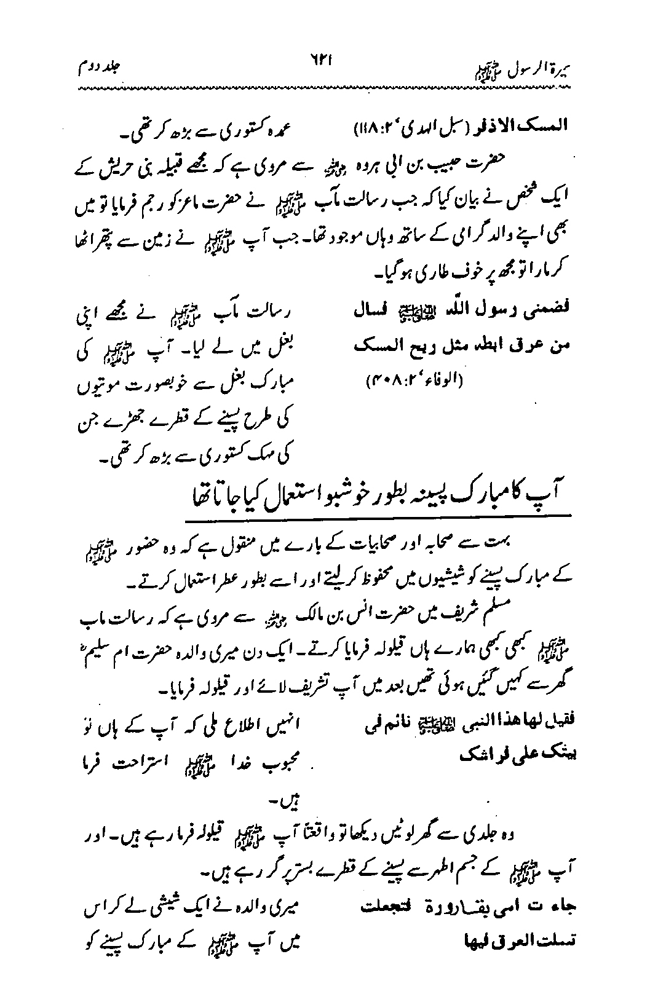 سیرۃ الرسول ﷺ ۶۲۱ جلد دوم
المسک الاذفر (سبل الہدی ' ۲:۱۱۸) عمدہ کستوری سے بڑھ کر تھی۔
حضرت حبیب بن ابی ہروہ ؓ سے مروی ہے کہ مجھے قبیلہ بنی حریش کے
ایک شخص نے بیان کیا کہ جب رسالت مآب ﷺ نے حضرت ماعز کو رجم فرمایا تو میں
بھی اپنے والد گرامی کے ساتھ وہاں موجود تھا۔ جب آپ ﷺ نے زمین سے پتھر اٹھا
کر مارا تو مجھ پر خوف طاری ہو گیا۔
فضمنی رسول اللّٰہ ﷺ فسال رسالت مآب ﷺ نے مجھے اپنی
من عرق ابطہ مثل ریح المسک بغل میں لے لیا۔ آپ ﷺ کی
(الوفاء ' ۲:۴۰۸) مبارک بغل سے خوبصورت موتیوں
کی طرح پسینے کے قطرے جھڑے جن
کی مہک کستوری سے بڑھ کر تھی۔
آپ کا مبارک پسینہ بطور خوشبو استعمال کیا جاتا تھا
بہت سے صحابہ اور صحابیات کے بارے میں منقول ہے کہ وہ حضور ﷺ
کے مبارک پسینے کو شیشیوں میں محفوظ کر لیتے اور اسے بطور عطر استعمال کرتے۔
مسلم شریف میں حضرت انس بن مالک ؓ سے مروی ہے کہ رسالت ماب
ﷺ کبھی کبھی ہمارے ہاں قیلولہ فرمایا کرتے۔ ایک دن میری والدہ حضرت ام سلیم ؓ
گھر سے کہیں گئیں ہوئی تھیں بعد میں آپ تشریف لائے اور قیلولہ فرمایا۔
فقیل لها هذا النبی ﷺ نائم فی انہیں اطلاع ملی کہ آپ کے ہاں تو
بیتک علی فراشک محبوب خدا ﷺ استراحت فرما
ہیں۔
وہ جلدی سے گھر لوٹیں دیکھا تو واقعتاً آپ ﷺ قیلولہ فرما رہے ہیں۔ اور
آپ ﷺ کے جسم اطہر سے پسینے کے قطرے بستر پر گر رہے ہیں۔
جاء ت امی بقارورة فجعلت میری والدہ نے ایک شیشی لے کر اس
تسلت العرق فیها میں آپ ﷺ کے مبارک پسینے کو